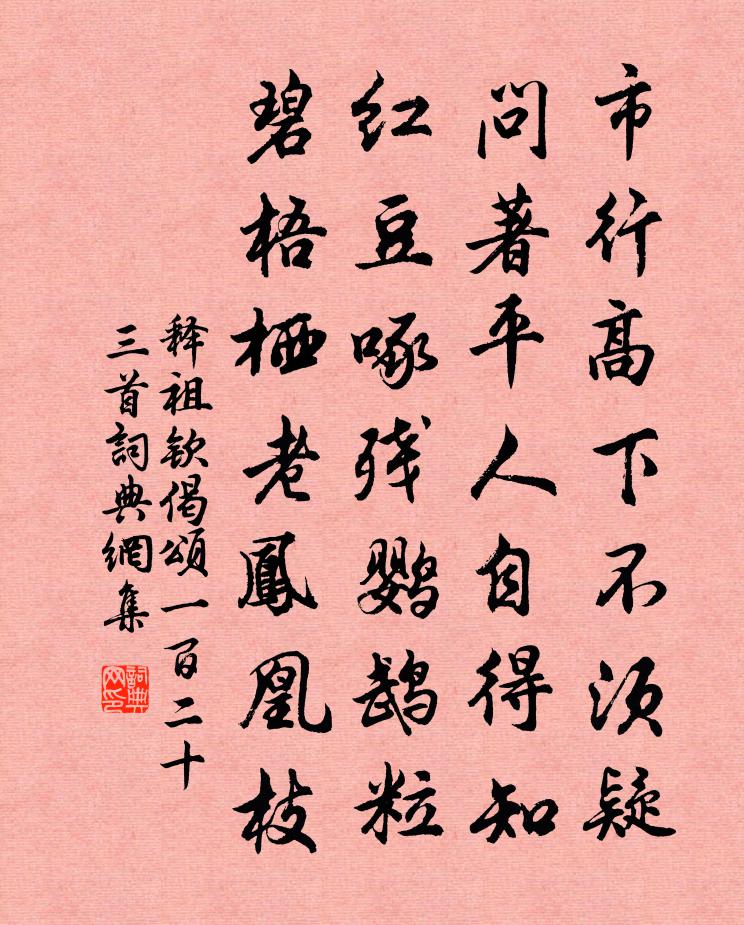 市行高下不须疑
問著平人自得知
红豆啄残鹦鹉粒
碧梧栖老鳳凰枝
释祖钦偈頌一百二十
三首詞典網集
詞典
网印